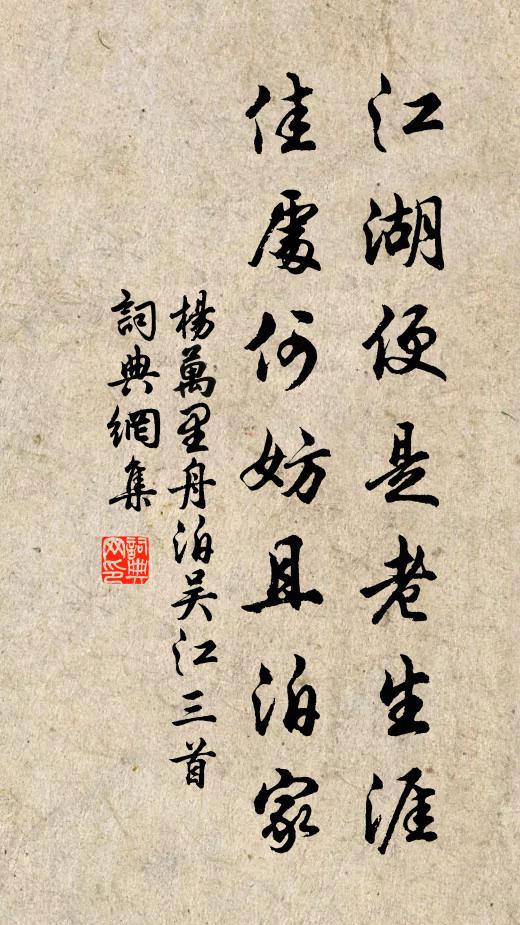 江湖便是老生涯
佳處何妨且泊家
楊萬里舟泊吴江三首
詞典網集
詞典网印